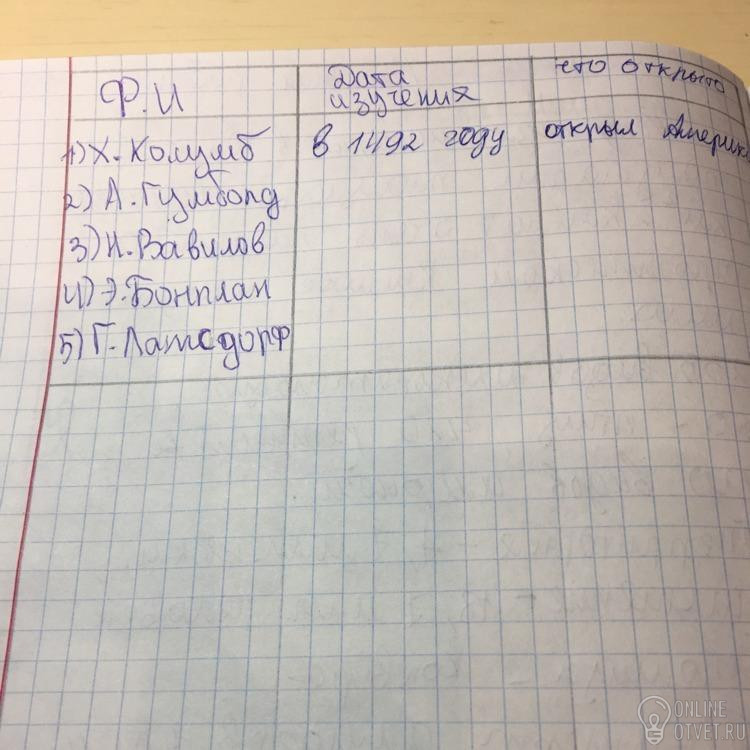 Ф.И Дата изучения что открыто
1) Х. Колумб в 1492 году открыл Америк
2) А. Гумболд
3) Н. Вавилов
4) Э. Бонплан
5) Г. Латсдорф
ONLINE
OTVET.RU